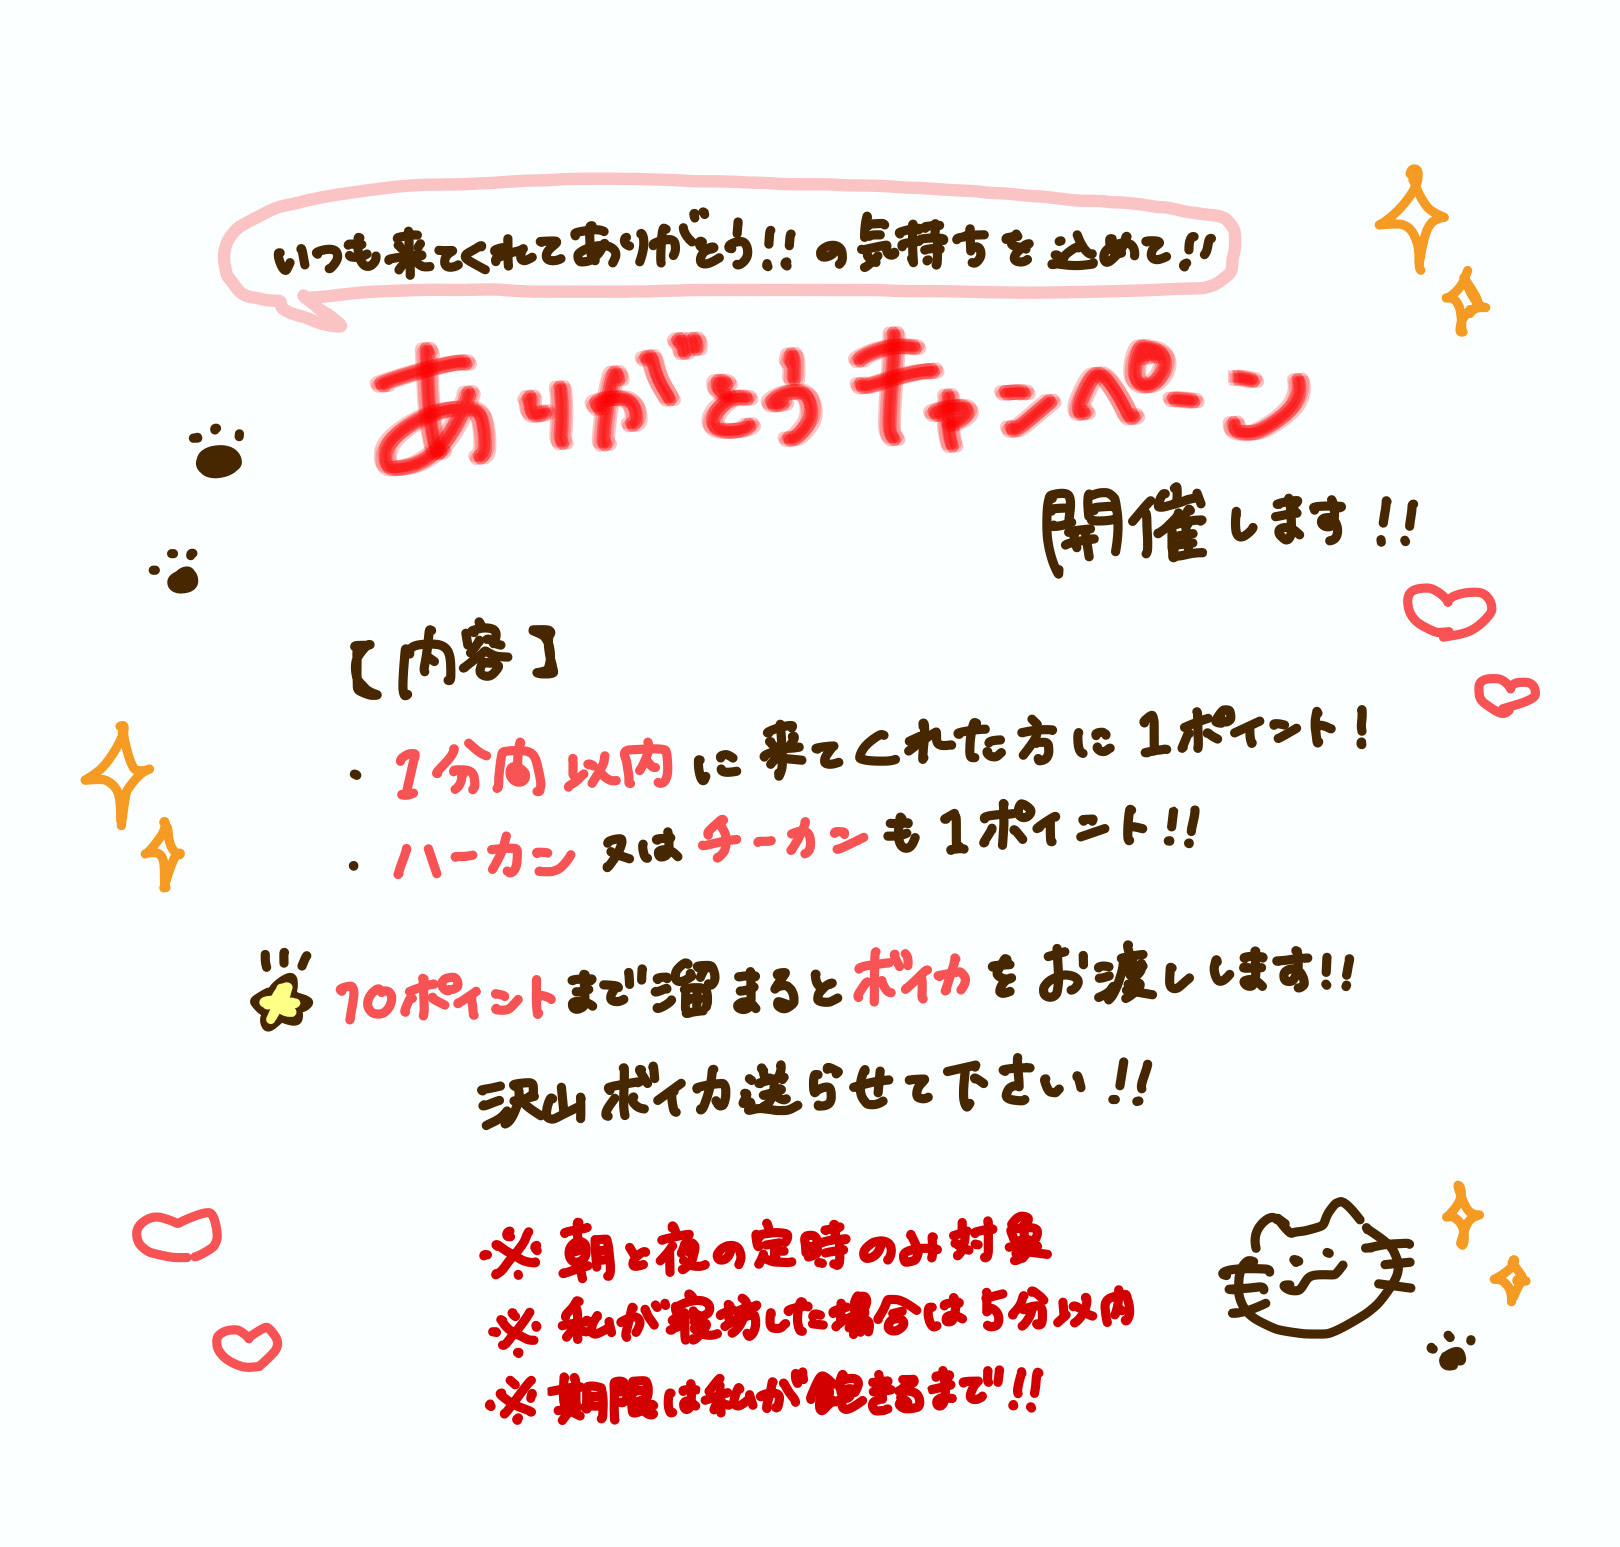 いつも来てくれてありがとう!!の気持ちを込めて!!
ありがとうキャンペーン
開催します!!
【内容】
・1分間以内に来てくれた方に1ポイント!
・ハーカン又はチーカンも1ポイント!!
10ポイントまで溜まるとボイカをお渡しします!!
沢山ボイカ送らせて下さい!!
※朝と夜の定時のみ対象
※私が寝坊した場合は5分以内
※期限は私が飽きるまで!!